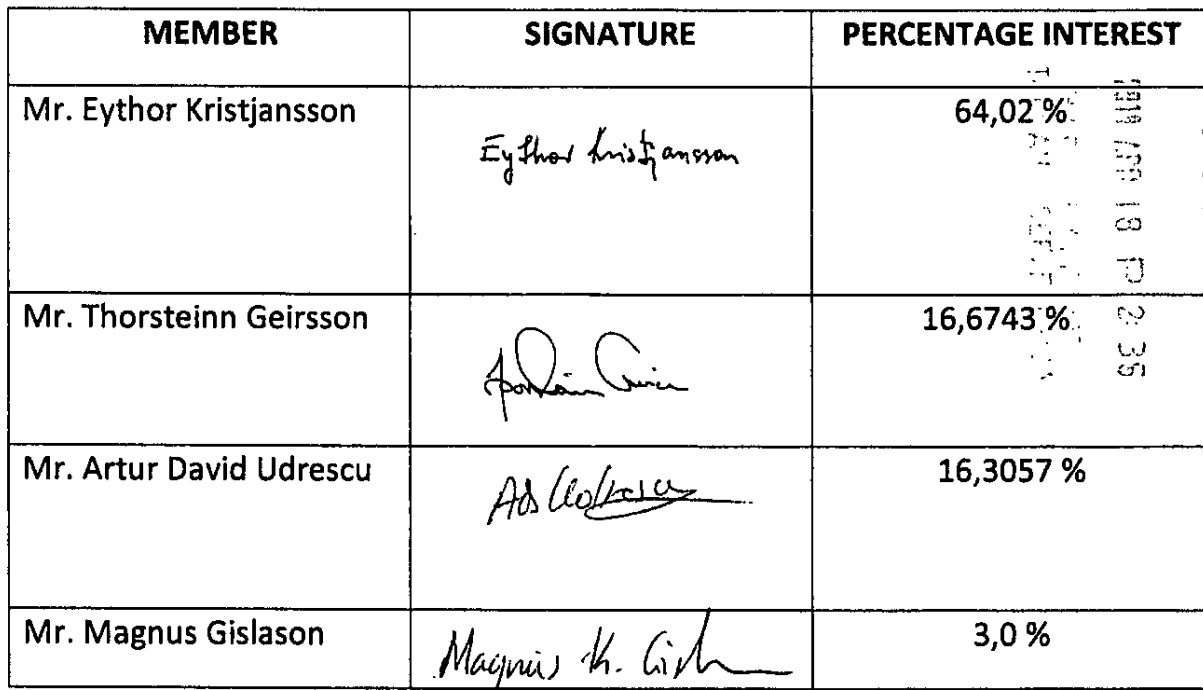 MEMBER SIGNATURE PERCENTAGE INTEREST
Mr. Eythor Kristjansson 64,02 %
Eythor Kristjansson
Mr. Thorsteinn Geirsson 16,6743 %
Mr. Artur David Udrescu 16,3057 %
Mr. Magnus Gislason 3,0 %
Magnús K.
APR 18 P 2:35